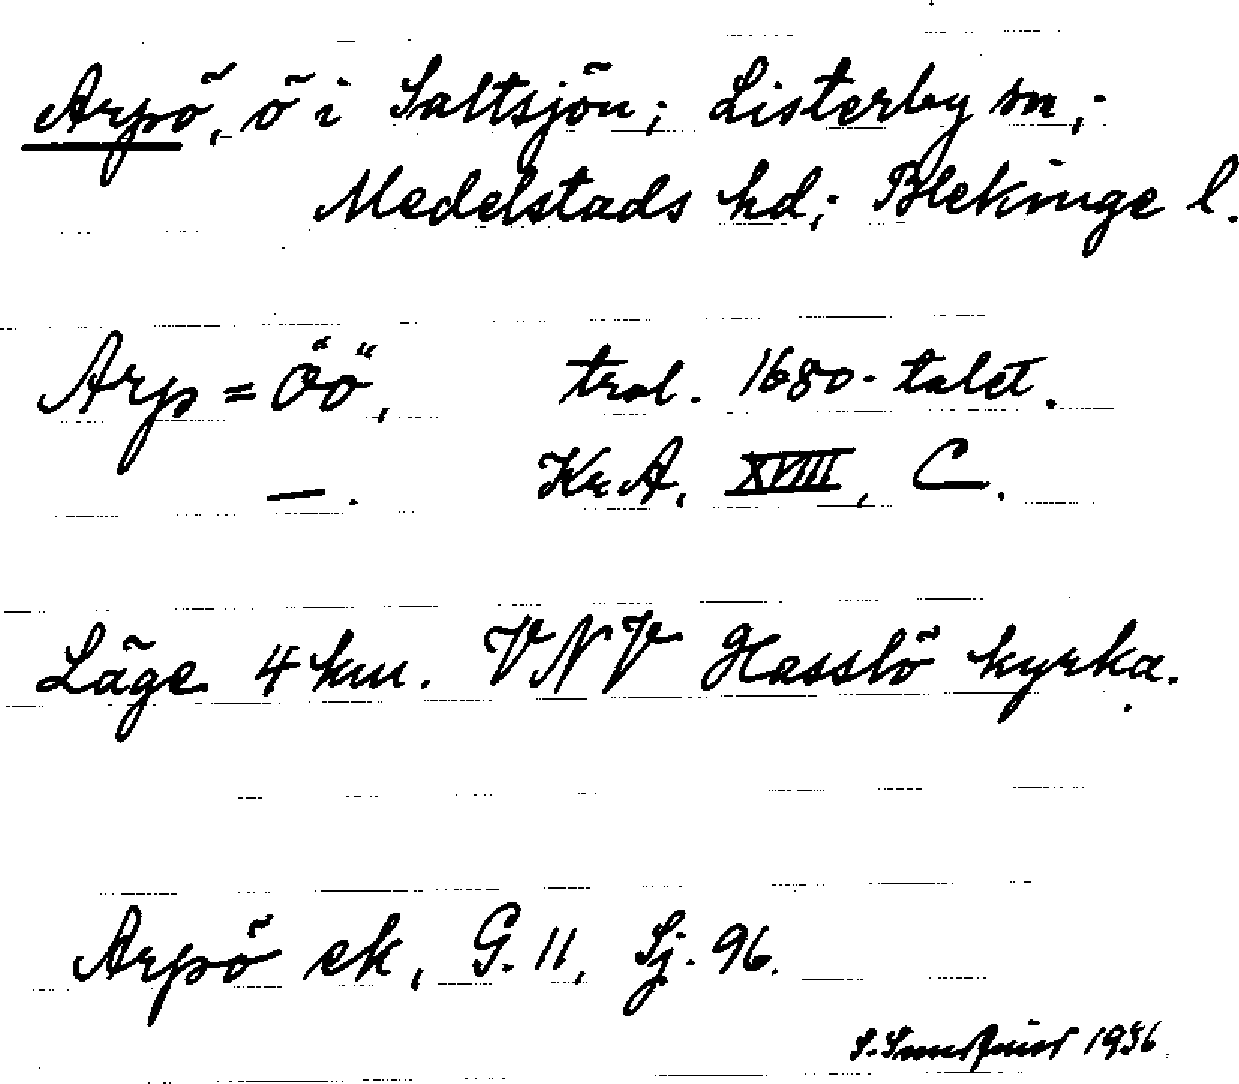 Arpö, ö i Saltsjön; Listerby sn,;
Medelstads hd; Blekinge l.
Arp=Öö, trol. 1680-talet.
—. Kr.A. XVIII, C.
Läge 4 km. VNV Hasslö kyrka.
Arpö ek, G. 11, Sj. 96.
1936